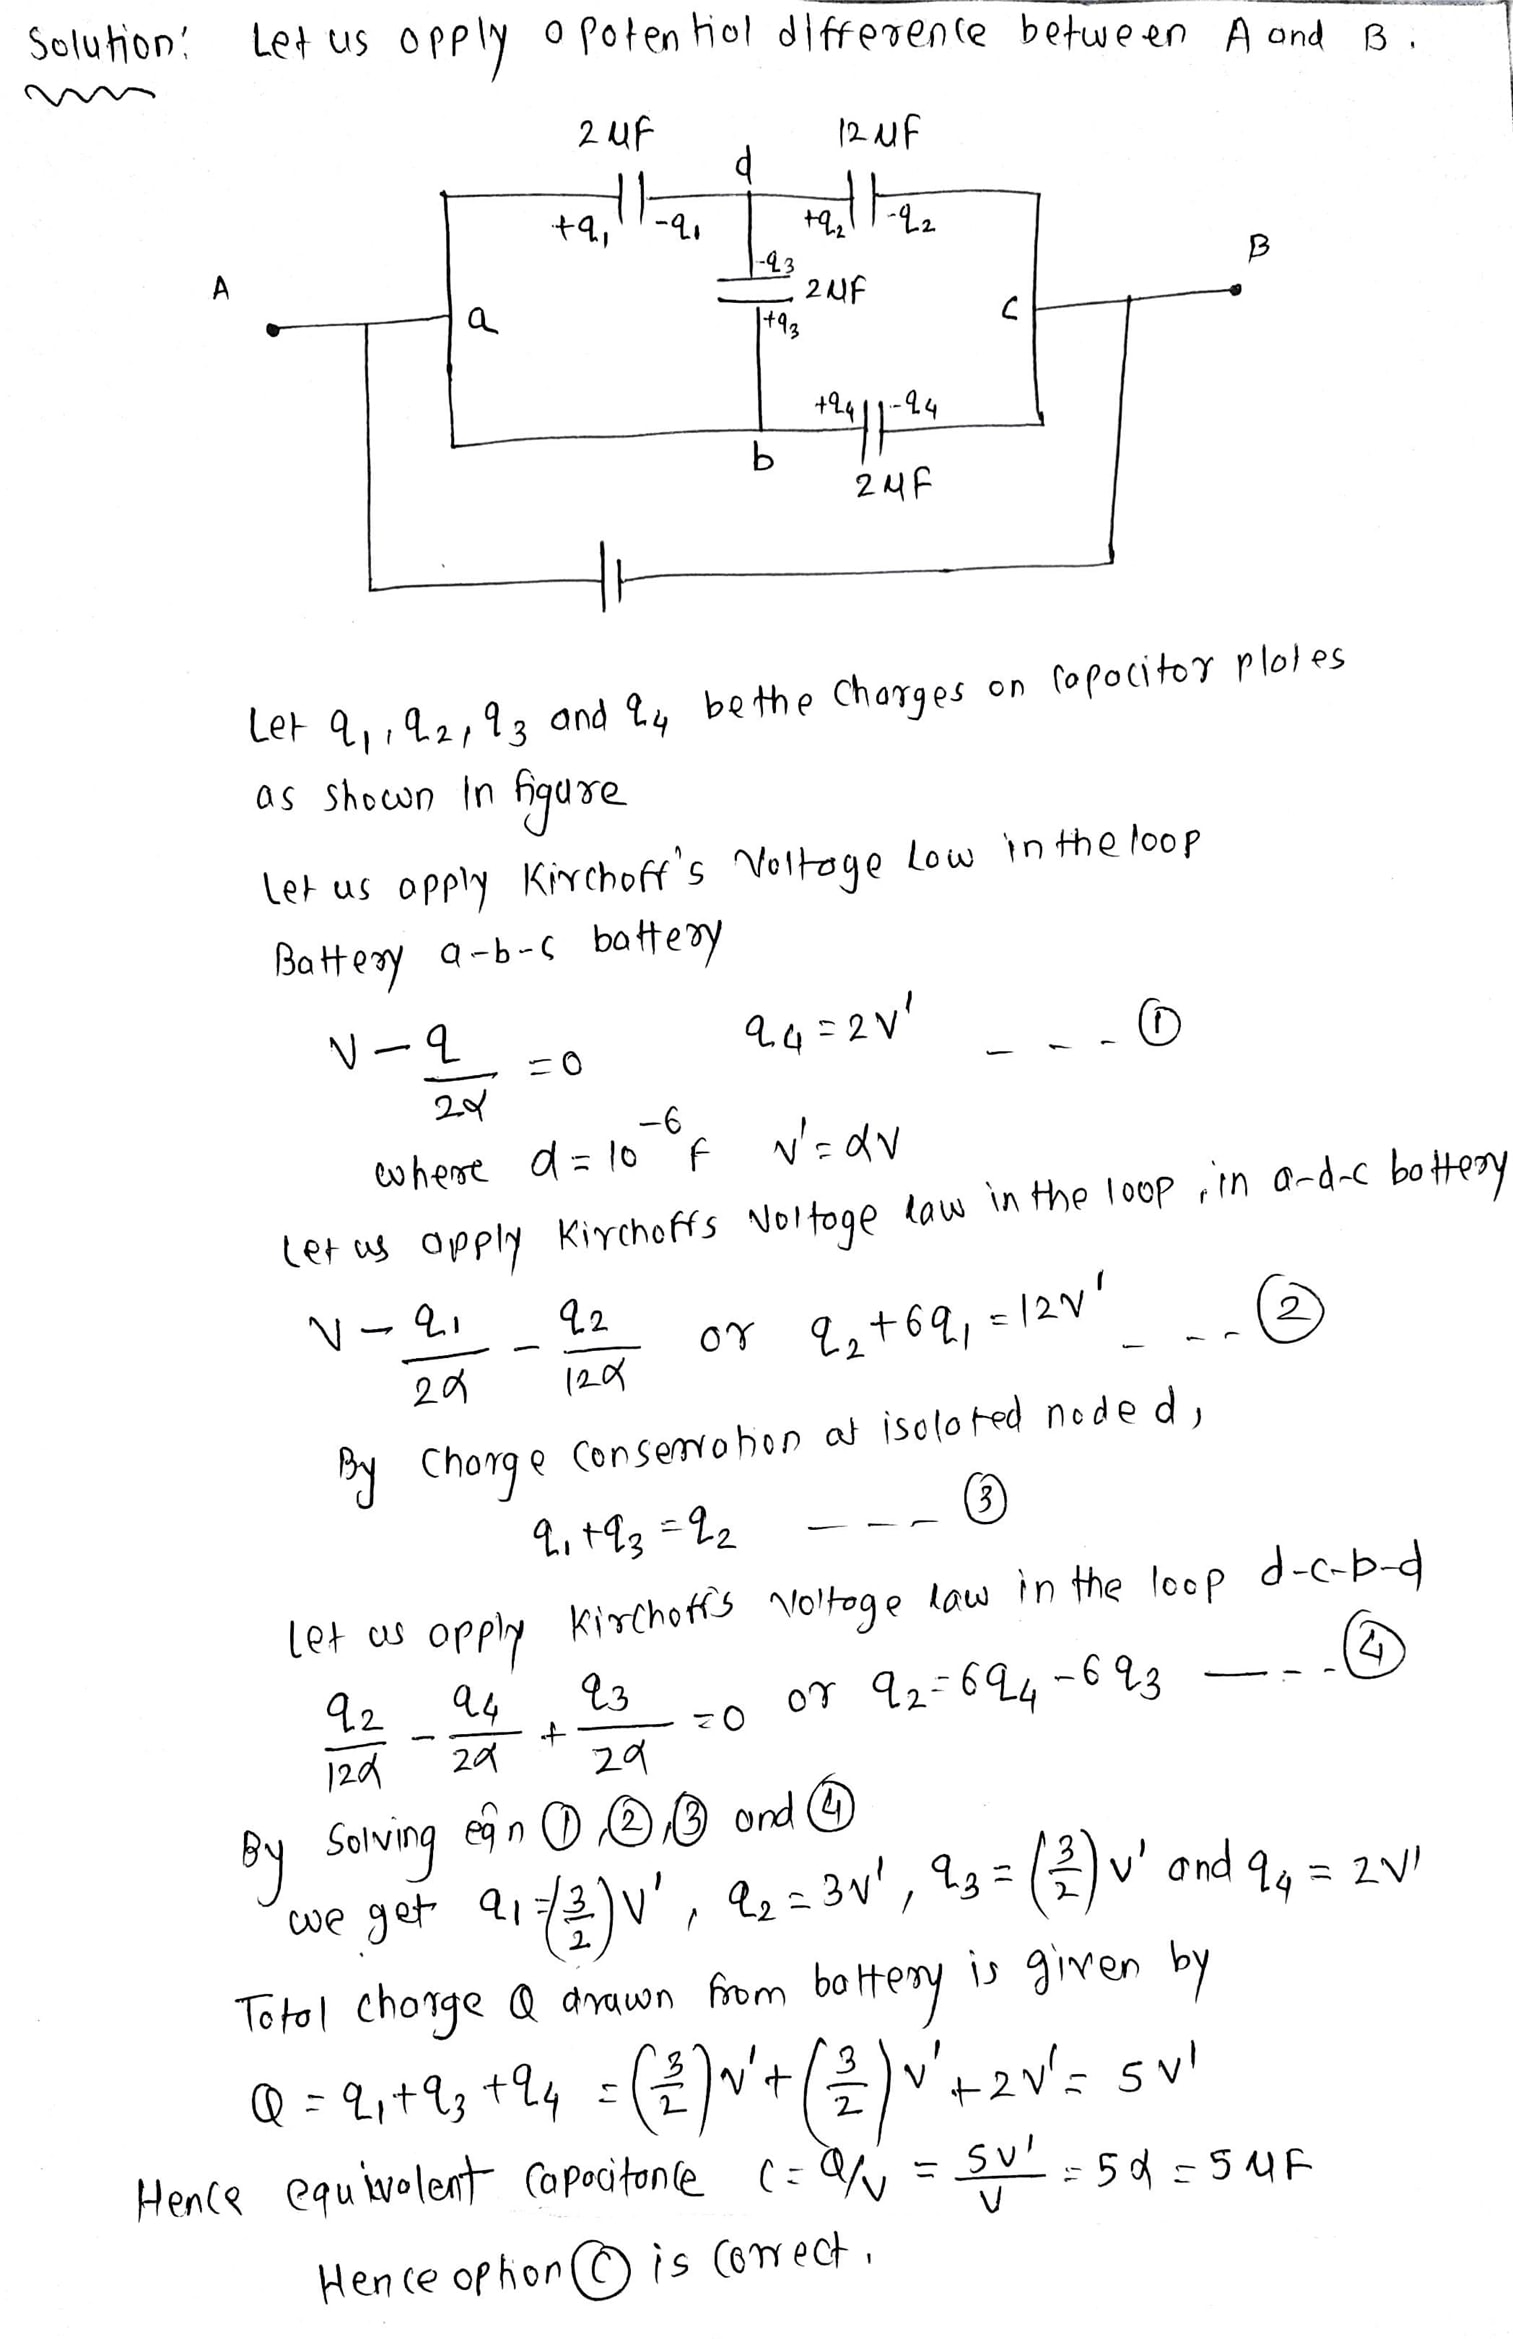 Solution: Let us apply a potential difference between A and B.
2 μF
12 μF
d
+q₁ -q₁ +q₂ -q₂
B
-q₃
A
2 μF
a
c
+q₃
+q₄ -q₄
b
2 μF
Let q₁, q₂, q₃ and q₄ be the Charges on Capacitor plates
as shown In figure
Let us apply Kirchoff's Voltage Law in the loop
Battery a-b-c battery
V - q/2α = 0 q₄ = 2V' - - - ①
where α = 10⁻⁶ F V' = αV
Let us apply Kirchoffs Voltage law in the loop, in a-d-c battery
V - q₁/2α - q₂/12α or q₂ + 6q₁ = 12V' - - - ②
By Charge Conservation at isolated node d,
q₁ + q₃ = q₂ - - - - ③
Let us apply Kirchoff's Voltage law in the loop d-c-b-d
q₂/12α - q₄/2α + q₃/2α = 0 or q₂ = 6q₄ - 6q₃ - - - ④
By Solving eqn ①, ②, ③ and ④
we get q₁ = (3/2)V', q₂ = 3V', q₃ = (3/2)V' and q₄ = 2V'
Total charge Q drawn from battery is given by
Q = q₁ + q₃ + q₄ = (3/2)V' + (3/2)V' + 2V' = 5V'
Hence equivalent Capacitance C = Q/V = 5V'/V = 5α = 5 μF
Hence option Ⓒ is correct.